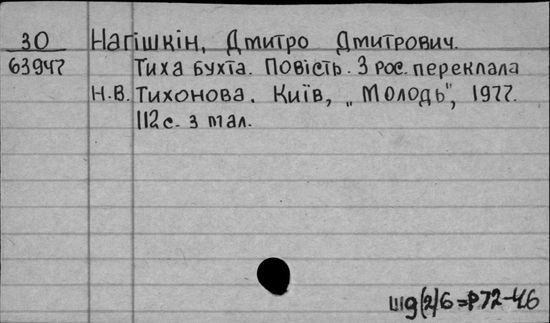 30 Нагішкін, Дмитро Дмитрович.
63947 Тиха бухта. Повість. З рос. переклала
Н.В. Тихонова. Київ, „Молодь", 1977.
112 с. з мал.
шд(2)6=Р72-46